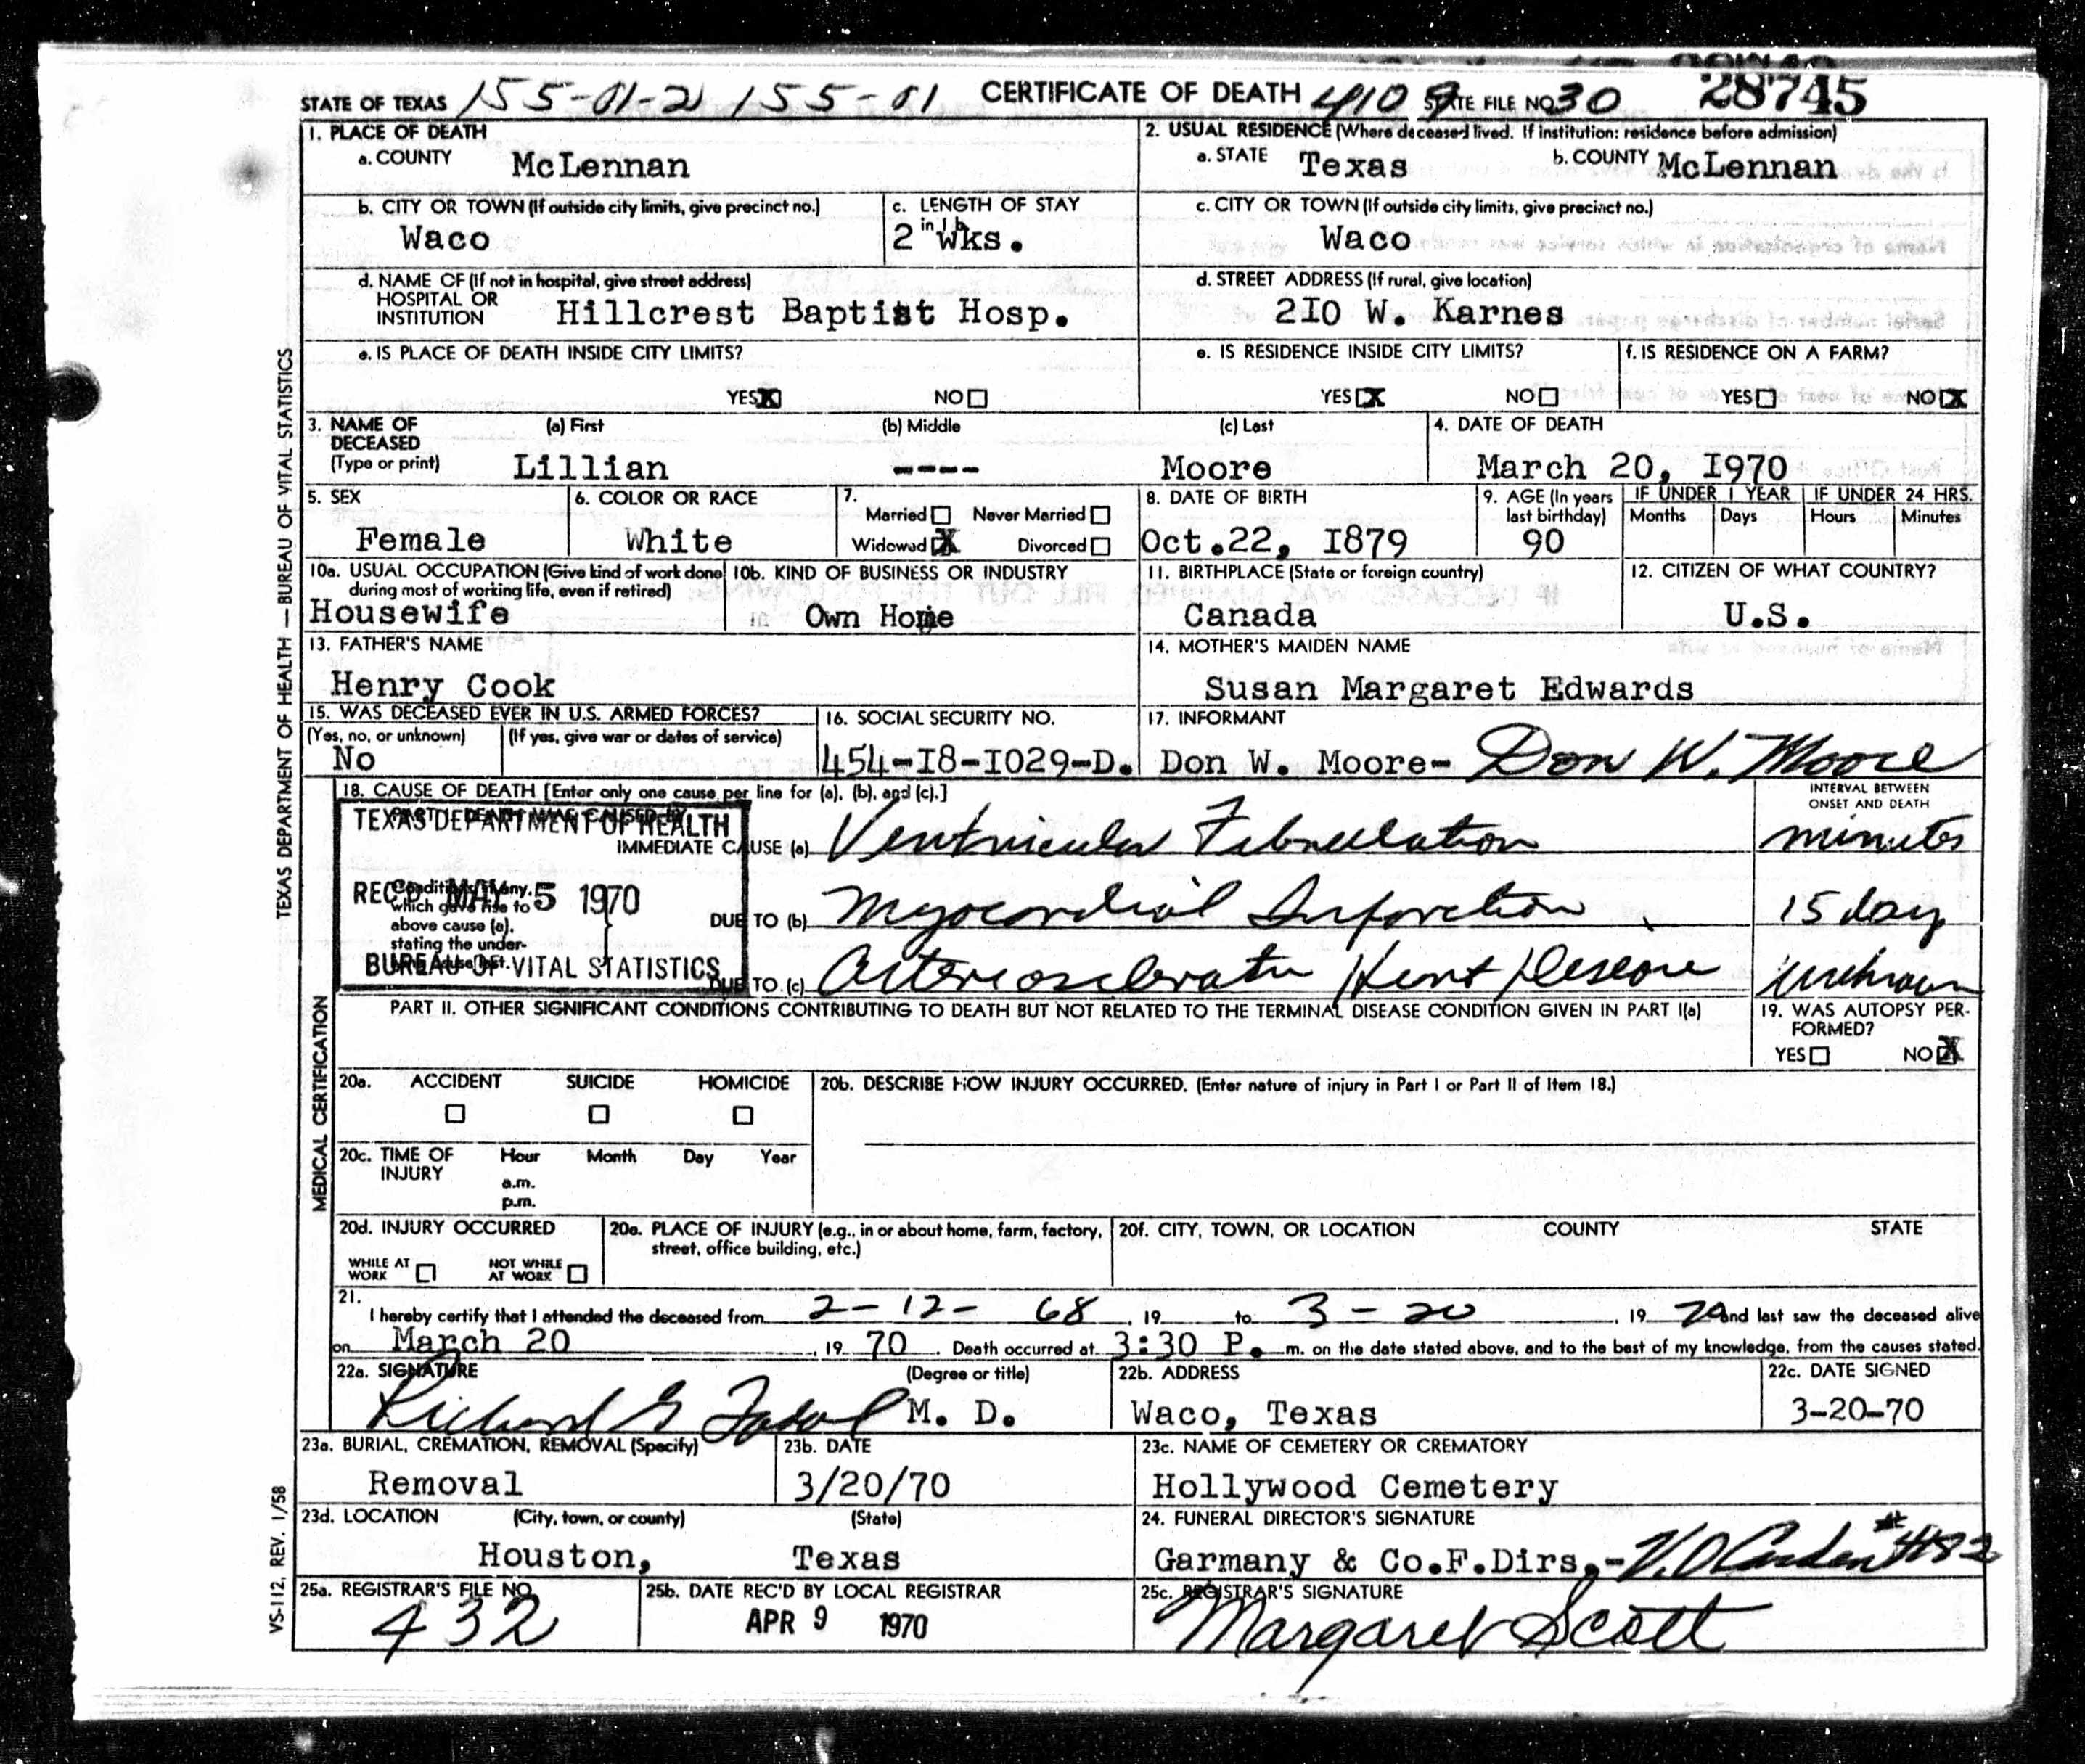 STATE OF TEXAS 155-01-2 155-01 CERTIFICATE OF DEATH 4109 STATE FILE NO. 30 28745
1. PLACE OF DEATH
a. COUNTY McLennan
2. USUAL RESIDENCE (Where deceased lived. If institution: residence before admission)
a. STATE Texas b. COUNTY McLennan
b. CITY OR TOWN (If outside city limits, give precinct no.)
Waco
c. LENGTH OF STAY
in 1 b
2 wks.
c. CITY OR TOWN (If outside city limits, give precinct no.)
Waco
d. NAME OF (If not in hospital, give street address)
HOSPITAL OR
INSTITUTION Hillcrest Baptist Hosp.
d. STREET ADDRESS (If rural, give location)
2I0 W. Karnes
e. IS PLACE OF DEATH INSIDE CITY LIMITS?
YES X NO
e. IS RESIDENCE INSIDE CITY LIMITS?
YES X NO
f. IS RESIDENCE ON A FARM?
YES NO X
3. NAME OF DECEASED (Type or print)
(a) First (b) Middle (c) Last
Lillian ---- Moore
4. DATE OF DEATH
March 20, I970
5. SEX
Female
6. COLOR OR RACE
White
7.
Married Never Married
Widowed X Divorced
8. DATE OF BIRTH
Oct.22, I879
9. AGE (In years last birthday)
90
IF UNDER 1 YEAR
Months Days
IF UNDER 24 HRS.
Hours Minutes
10a. USUAL OCCUPATION (Give kind of work done
during most of working life, even if retired)
Housewife
10b. KIND OF BUSINESS OR INDUSTRY
Own Home
11. BIRTHPLACE (State or foreign country)
Canada
12. CITIZEN OF WHAT COUNTRY?
U.S.
13. FATHER'S NAME
Henry Cook
14. MOTHER'S MAIDEN NAME
Susan Margaret Edwards
15. WAS DECEASED EVER IN U.S. ARMED FORCES?
(Yes, no, or unknown) (If yes, give war or dates of service)
No
16. SOCIAL SECURITY NO.
454-I8-I029-D.
17. INFORMANT
Don W. Moore- Don W. Moore
18. CAUSE OF DEATH [Enter only one cause per line for (a), (b), and (c).]
INTERVAL BETWEEN
ONSET AND DEATH
PART I. DEATH WAS CAUSED BY:
IMMEDIATE CAUSE (a) Ventricular Fibrillation minutes
Conditions, if any,
which gave rise to
above cause (a),
stating the under-
lying cause last.
DUE TO (b) Myocardial Infarction 15 day
DUE TO (c) Arteriosclerotic Heart Disease unknown
TEXAS DEPARTMENT OF HEALTH
REC'D MAY 5 1970
BUREAU OF VITAL STATISTICS
PART II. OTHER SIGNIFICANT CONDITIONS CONTRIBUTING TO DEATH BUT NOT RELATED TO THE TERMINAL DISEASE CONDITION GIVEN IN PART I(a)
19. WAS AUTOPSY PER-
FORMED?
YES NO X
20a. ACCIDENT SUICIDE HOMICIDE
20b. DESCRIBE HOW INJURY OCCURRED. (Enter nature of injury in Part I or Part II of Item 18.)
20c. TIME OF INJURY Hour Month Day Year
a.m.
p.m.
20d. INJURY OCCURRED
WHILE AT WORK NOT WHILE AT WORK
20e. PLACE OF INJURY (e.g., in or about home, farm, factory,
street, office building, etc.)
20f. CITY, TOWN, OR LOCATION COUNTY STATE
21.
I hereby certify that I attended the deceased from 2-12- 68, 19 to 3-20, 19 70 and last saw the deceased alive
on March 20, 19 70. Death occurred at 3:30 P. m. on the date stated above, and to the best of my knowledge, from the causes stated.
22a. SIGNATURE (Degree or title)
Richard G M. D.
22b. ADDRESS
Waco, Texas
22c. DATE SIGNED
3-20-70
23a. BURIAL, CREMATION, REMOVAL (Specify)
Removal
23b. DATE
3/20/70
23c. NAME OF CEMETERY OR CREMATORY
Hollywood Cemetery
23d. LOCATION (City, town, or county) (State)
Houston, Texas
24. FUNERAL DIRECTOR'S SIGNATURE
Garmany & Co.F.Dirs.-
25a. REGISTRAR'S FILE NO.
432
25b. DATE REC'D BY LOCAL REGISTRAR
APR 9 1970
25c. REGISTRAR'S SIGNATURE
Margaret Scott
TEXAS DEPARTMENT OF HEALTH — BUREAU OF VITAL STATISTICS
MEDICAL CERTIFICATION
VS-112, REV. 1/58